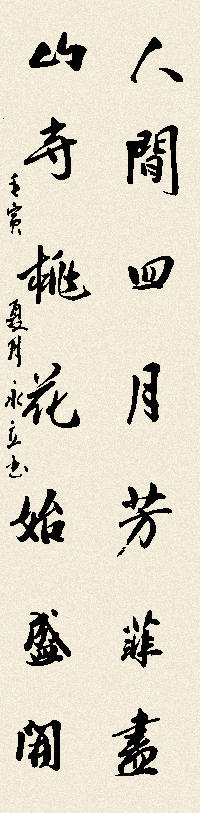 人間四月芳菲盡
山寺桃花始盛開
壬寅夏月永立书